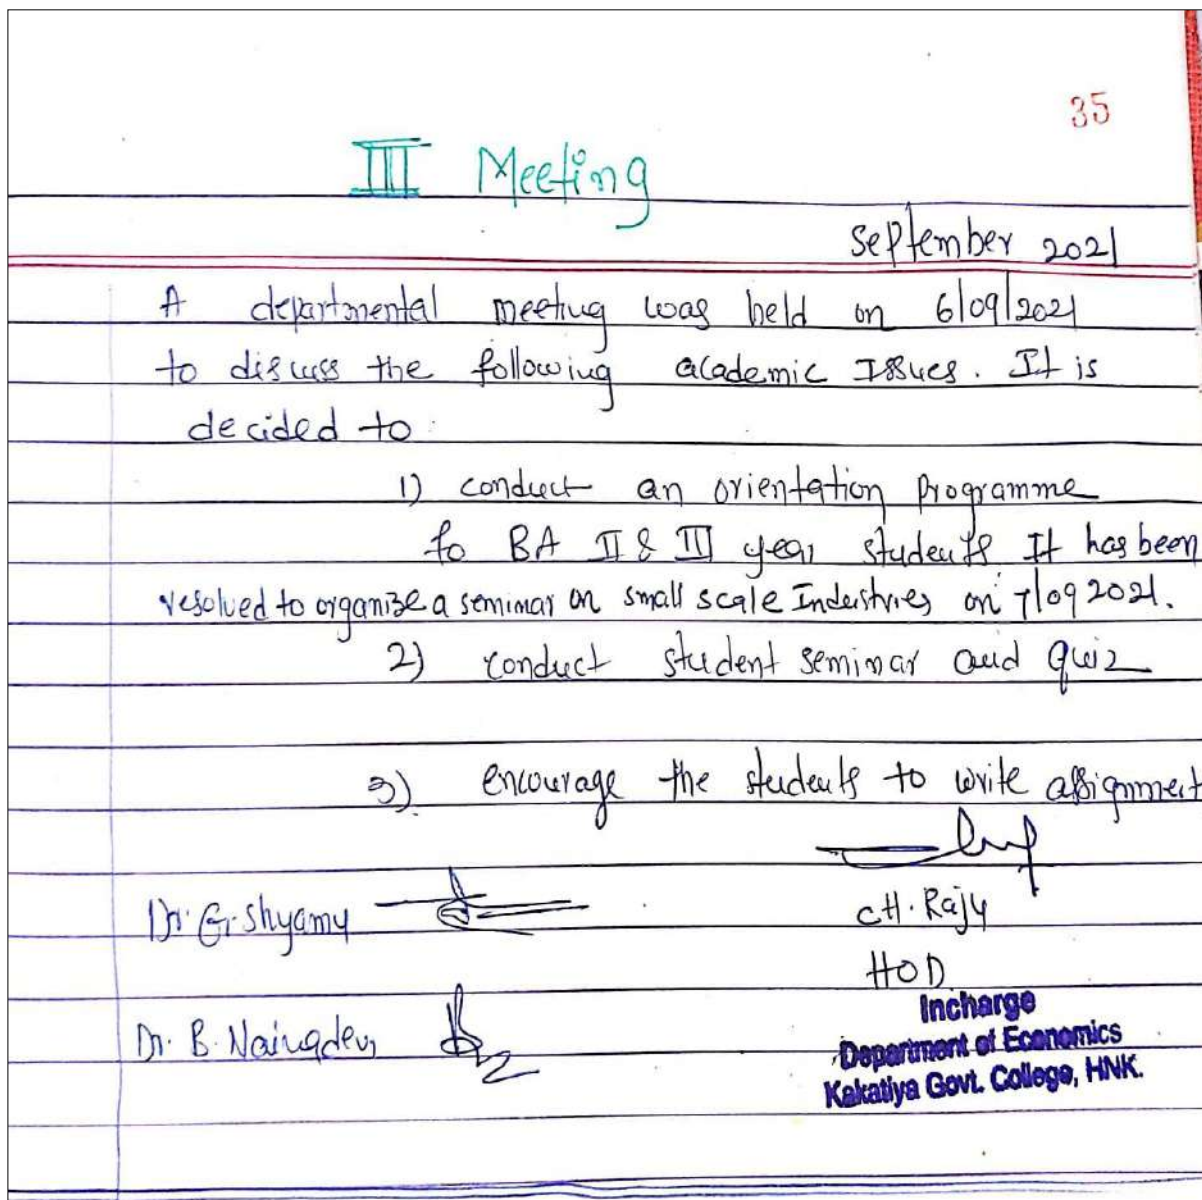 35
III Meeting
September 2021
A departmental meeting was held on 6/09/2021
to discuss the following academic Issues. It is
decided to
1) conduct an orientation Programme
to BA II & III year students It has been
resolved to organize a seminar on small scale Industries on 7/09 2021.
2) conduct student seminar and quiz
3) encourage the students to write assignment
Dr. G. Shyamu
CH. Raju
HOD
Incharge
Dr. B.
Department of Economics
Kakatiya Govt. College, HNK.